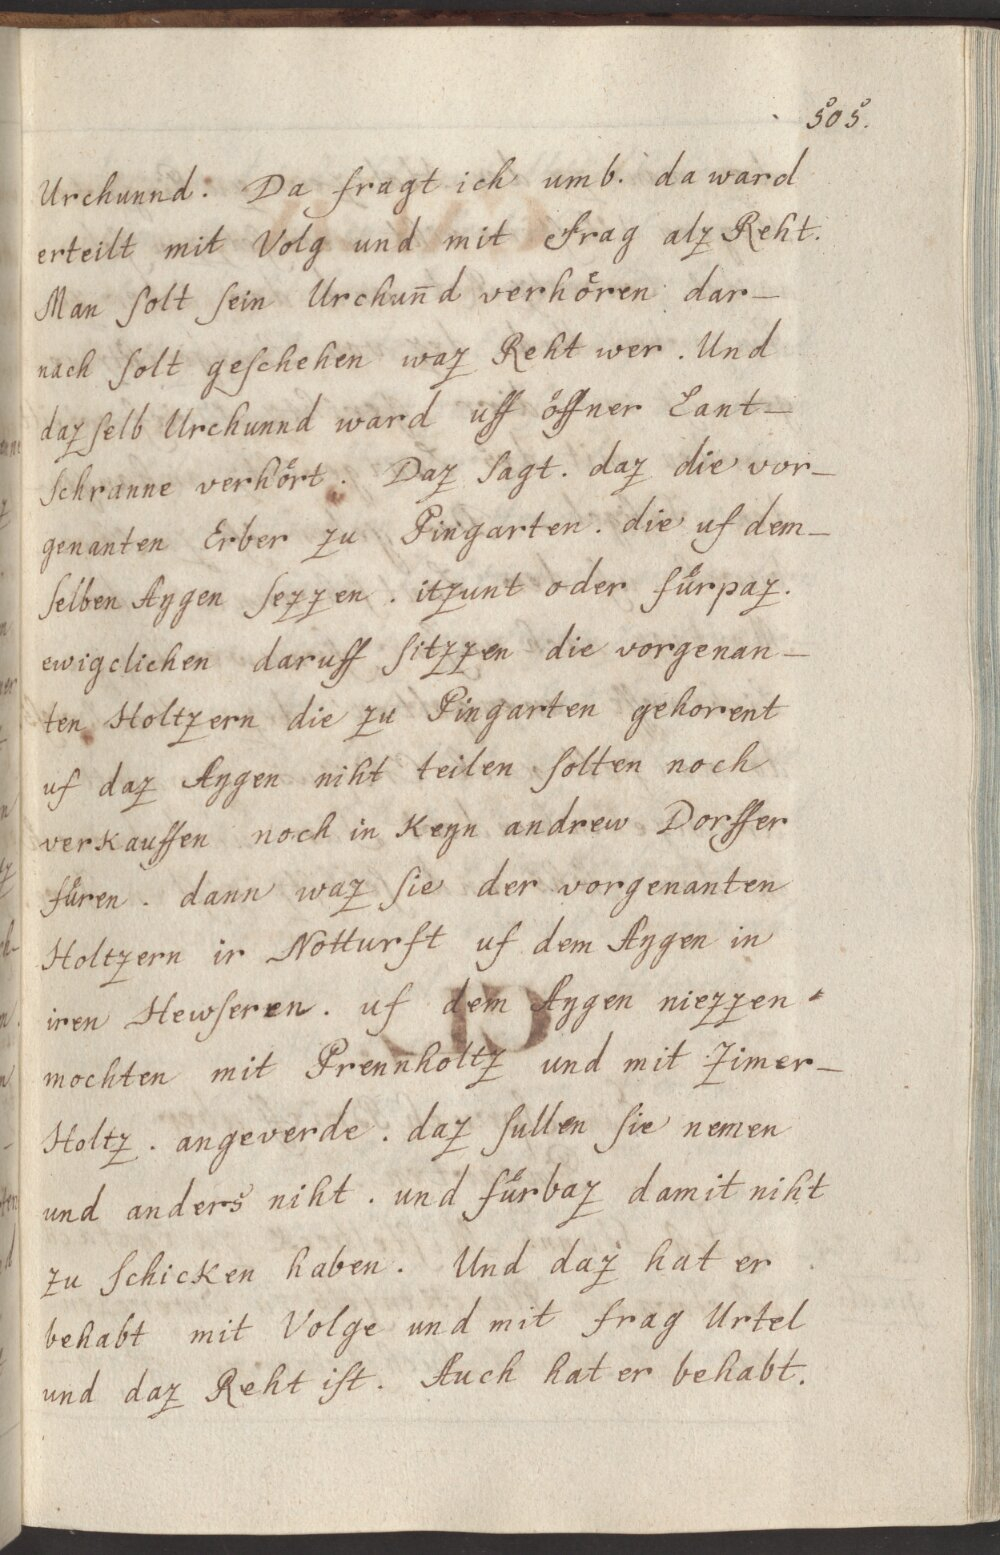 505.
Urchunnd. Da fragt ich umb. da ward
erteilt mit Volg und mit Frag alz Reht.
Man solt sein Urchun̄d verhoͤren dar-
nach solt geschehen waz Reht wer. Und
daz selb Urchunnd ward uff öffner Lant-
schranne verhoͤrt. Daz sagt. daz die vor-
genanten Erber zu Pingarten. die uf dem-
selben Aygen sezzen. itzunt oder fuͤrpaz.
ewigclichen daruff sitzzen die vorgenan-
ten Holtzern die zu Pingarten gehorent
uf daz Aygen niht teilen solten noch
verkauffen noch in Keyn andrew Dorffer
fuͤren. dann waz sie der vorgenanten
Holtzern ir Notturft uf dem Aygen in
iren Hewseren. uf dem Aygen niezzen
mochten mit Prennholtz und mit Zimer-
Holtz. angeverde. daz sullen sie nemen
und anders niht. und fuͤrbaz damit niht
zu schicken haben. Und daz hat er
behabt mit Volge und mit frag Urtel
und daz Reht ist. Auch hat er behabt.